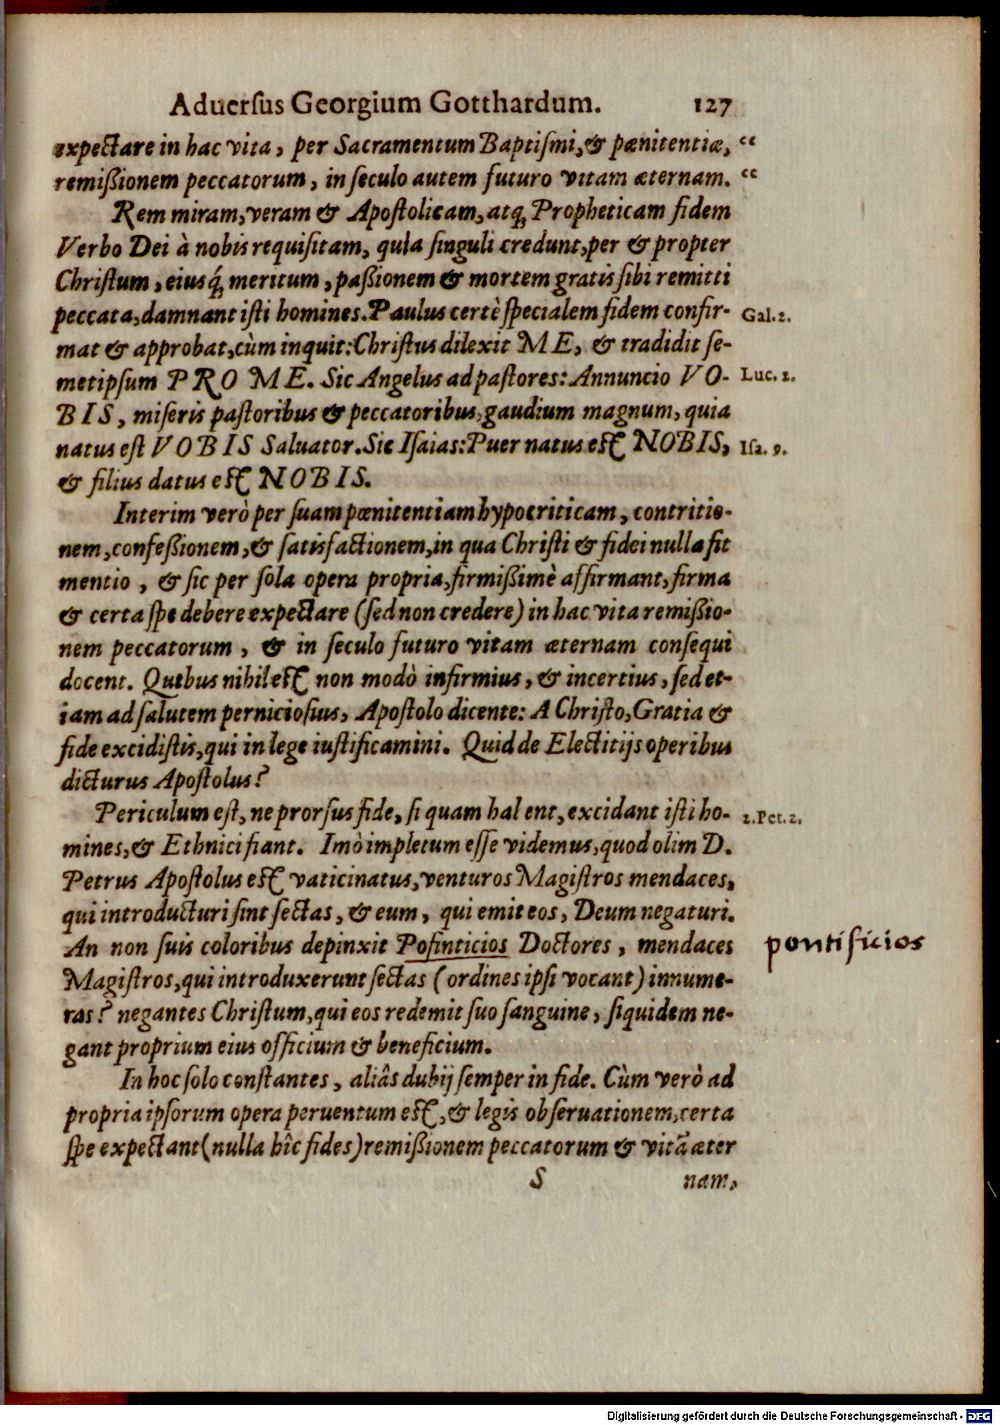 Aduersus Georgium Gotthardum. 127
expectare in hac vita, per Sacramentum Baptismi, & pœnitentiæ, “
remißionem peccatorum, in seculo autem futuro vitam æternam. “
Rem miram, veram & Apostolicam, atq; Propheticam fidem
Verbo Dei à nobis requisitam, quia singuli credunt, per & propter
Christum, eiusq́; meritum, paßionem & mortem gratis sibi remitti
peccata, damnant isti homines. Paulus certè specialem fidem confir- Gal. 2.
mat & approbat, cùm inquit: Christus dilexit ME, & tradidit se-
metipsum PRO ME. Sic Angelus ad pastores: Annuncio VO- Luc. 2.
BIS, miseris pastoribus & peccatoribus, gaudium magnum, quia
natus est VOBIS Saluator. Sic Isaias: Puer natus est NOBIS, Isa. 9.
& filius datus est NOBIS.
Interim verò per suam pœnitentiam hypocriticam, contritio-
nem, confeßionem, & satisfactionem, in qua Christi & fidei nulla fit
mentio, & sic per sola opera propria, firmißimè affirmant, firma
& certa spe debere expectare (sed non credere) in hac vita remißio-
nem peccatorum, & in seculo futuro vitam æternam consequi
docent. Quibus nihil est non modò infirmius, & incertius, sed et-
iam ad salutem perniciosius, Apostolo dicente: A Christo, Gratia &
fide excidistis, qui in lege iustificamini. Quid de Electitijs operibus
dicturus Apostolus?
Periculum est, ne prorsus fide, si quam hal ent, excidant isti ho- 2. Pet. 2.
mines, & Ethnici fiant. Imò impletum esse videmus, quod olim D.
Petrus Apostolus est vaticinatus, venturos Magistros mendaces,
qui introducturi sint sectas, & eum, qui emit eos, Deum negaturi.
An non suis coloribus depinxit Pofinticios Doctores, mendaces pontificios
Magistros, qui introduxerunt sectas (ordines ipsi vocant) innume-
ras? negantes Christum, qui eos redemit suo sanguine, siquidem ne-
gant proprium eius officium & beneficium.
In hoc solo constantes, aliâs dubij semper in fide. Cùm verò ad
propria ipsorum opera peruentum est, & legis obseruationem, certa
spe expectant (nulla hîc fides) remißionem peccatorum & vitã æter
S nam,
Digitalisierung gefördert durch die Deutsche Forschungsgemeinschaft - DFG